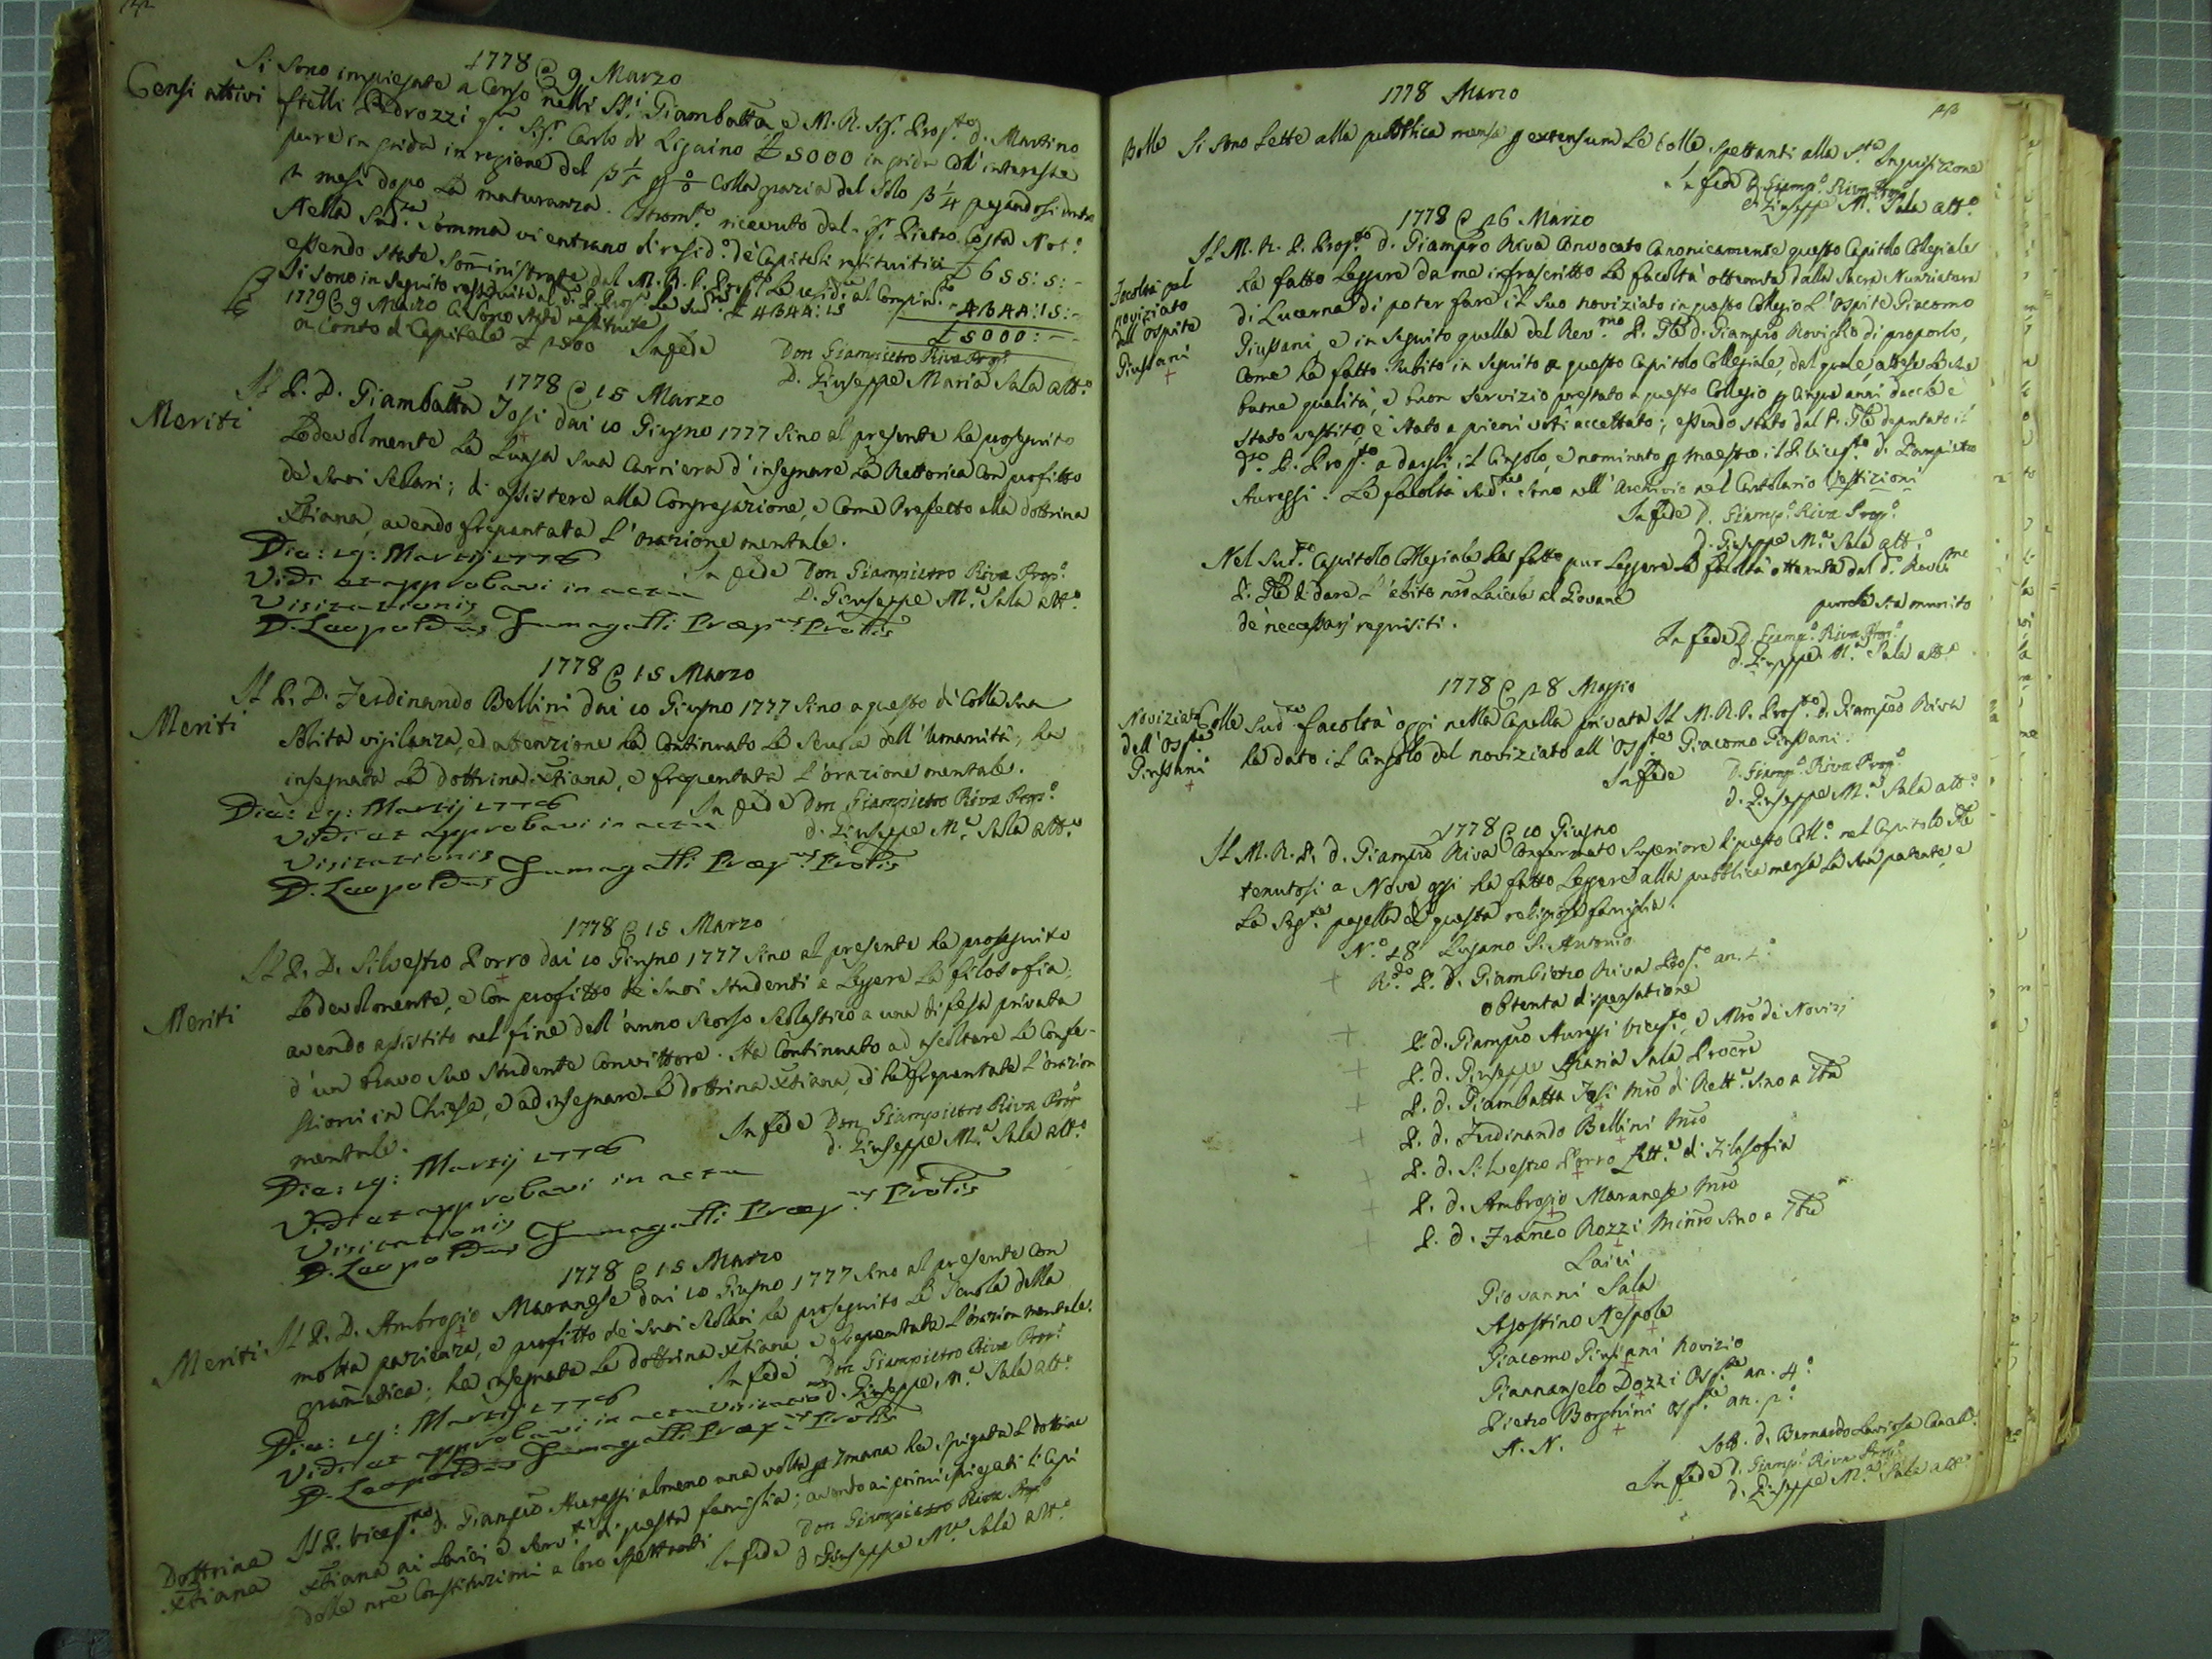 1778 @ 9 Marzo
Censi attivi
Si sono impiegate a Censo nelli SSi Giambatta e M. R. Sigr. Propto d. Martino
ftelli Pedrozzi qm Sigr Carlo di Ligaino £ 5000 in grida coll'interesse
pure in grida in ragione del colla grazia del solo pagandosi
2 mesi dopo la maturanza. Istromto ricevuto dal Sr. Pietro Costa Noto
Nella suda somma vi entrano di resido de Capitali restituitici £ 655: 5: -
essendo state somministrate dal M. R. P. Propto le residue al compimto - 4344:15: -
Si sono in seguito restituite al do P. Propto le sude £ 4344:15
£ 5000: - -
1779 @ 9 Marzo ci sono state restituite
a conto di Capitale £ 1500 In fede
Don Giampietro Riva Propo
D. Giuseppe Maria Sala atto
1778 @ 15 Marzo
Meriti
Il P. D. Giambatta Josi dai 10 Giugno 1777 sino al presente ha proseguito
lodevolmente la lunga sua carriera d'insegnare la Rettorica con profitto
de suoi scolari; di assistere alla Congregazione, e come Prefetto alla dottrina
Xtiana, avendo frequentata l'orazione mentale.
In fede Don Giampietro Riva Propo
D. Giuseppe Ma Sala atto
Die: 19: Martij 1778
Vidi et approbavi in actu
Visitationis
D. Leopoldus Fumagalli Præpus Pvlis
1778 @ 15 Marzo
Meriti
Il P. D. Ferdinando Bellini dai 10 Giugno 1777 sino a questo dì colla sua
solita vigilanza, ed attenzione ha continuato la scuola dell'umanità, ha
insegnata la dottrina xtiana, e frequentata l'orazione mentale.
In fede Don Giampietro Riva Propo
d. Giuseppe Ma Sala atto
Die: 19: Martij 1778
Vidi et approbavi in actu
Visitationis
D. Leopoldus Fumagalli Præpus Pvlis
1778 @ 15 Marzo
Meriti
Il P. D. Silvestro Porro dai 10 Giugno 1777 sino al presente ha proseguito
lodevolmente, e con profitto de suoi studenti a leggere la filosofia:
avendo assistito nel fine dell'anno scorso scolastico a una difesa privata
d'un bravo suo studente convittore. Ha continuato ad ascoltare le confes-
sioni in Chiesa, e ad insegnare la dottrina xtiana, ed ha frequentata l'orazion
mentale.
In fede Don Giampietro Riva Propo
d. Giuseppe Ma Sala atto
Die: 19: Martij 1778
Vidi et approbavi in actu
Visitationis
D. Leopoldus Fumagalli Præpus Pvlis
1778 @ 15 Marzo
Meriti
Il P. D. Ambrogio Maranese dai 10 Giugno 1777 sino al presente con
molta pazienza, e profitto de suoi scolari ha proseguito la scuola della
grammatica; ha insegnata la dottrina xtiana e frequentata l'orazion mentale.
In fede Don Giampietro Riva Propo
d. Giuseppe Ma Sala atto
Die: 19: Martij 1778
Vidi et approbavi in actu Visitationis
D. Leopoldus Fumagalli Præpus Pvlis
Dottrina
Xtiana
Il P. vicepto d. Giampro Aureggi almeno una volta p 7mana ha spiegata la dottrina
xtiana ai laici e servti di questa famiglia; avendo ai primi spiegati li Capi
delle nre Constituzioni a loro spettanti
In fede Don Giampietro Riva Propo
d Giuseppe Ma Sala atto
1778 Marzo
Bolle
Si sono lette alla pubblica mensa p extensum le bolle spettanti alla Sta Inquisizione
In fede D. Giampo Riva Propo
d. Giuseppe Ma Sala atto
1778 @ 26 Marzo
Facoltà pel
noviziato
dell'ospite
Giussani
Il M. R. P. Propto d. Giampro Riva convocato canonicamente questo Capitolo Collegiale
ha fatto leggere da me infrascritto la facoltà ottenuta dalla Sacra Nunziatura
di Lucerna di poter fare il suo noviziato in questo Collegio l'ospite Giacomo
Giussani e in seguito quella del Revmo P. Gle d. Giampro Roviglio di proporlo,
come ha fatto subito in seguito a questo Capitolo Collegiale, dal quale, attese le sue
buone qualità, e buon servizio prestato a questo Collegio p cinque anni dacchè è
stato vestito, è stato a pieni voti accettato; essendo stato dal P. Gle deputato il
do P. Propto a dargli il cingolo, e nominato p maestro il P. vicepto d. Giampietro
Aureggi. Le facoltà sude sono nell'Archivio nel Cartolario Vestizioni
In fede D. Giampo Riva Propo
d. Giuseppe Ma Sala atto
Nel sudo Capitolo Collegiale ha fatto pur leggere la facoltà ottenuta dal do Revmo
P. Gle di dare l'abito nro laicale al Giovane
purchè sia munito
de necessarj requisiti.
In fede D. Giampo Riva Propo
d. Giuseppe Ma Sala atto
1778 @ 28 Maggio
Noviziato
dell'Osple
Giussani
Colle sude facoltà oggi nella Capella privata Il M. R. P. Propto d. Giampro Riva
ha dato il cingolo del noviziato all'Osple Giacomo Giussani.
In fede D. Giampo Riva Propo
d. Giuseppe Ma Sala atto
1778 @ 10 Giugno
Il M. R. P. d. Giampro Riva confermato Superiore di questo Collo nel Capitolo Gle
tenutosi a Nove oggi ha fatto leggere alla pubblica mensa la sua patente e
la segte pagella di questa religiosa famiglia.
No 18 Lugano S. Antonio
Rdo P. d. Giampietro Riva Propto an. 4o
obtenta dispensatione
P. d. Giampro Aureggi vicepto, e Mro de Novizj
P. d. Giuseppe Maria Sala Procre
P. d. Giambatta Josi Mro di Retta sino a 7bre
P. d. Ferdinando Bellini Mro
P. d. Silvestro Porro Lettre di Filosofia
P. d. Ambrogio Maranese Mro
P. d. Franco Rozzi Minro sino a 7bre
Laici
Giovanni Sala
Agostino Nespola
Giacomo Giussani Novizio
Giannangelo Dozzi Osple an. 4o
Pietro Borghini Osple an. 2o
N. N.
Sotto. d. Bernardo Laviosa Cancell.
In fede D. Giampo Riva Propo
d. Giuseppe Ma Sala atto